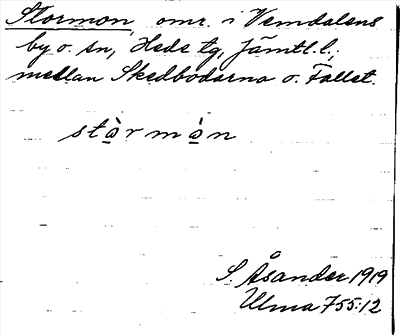 Stormon, omr. i Vemdalens
by o. sn, Hede tg, Jämtl. l.;
mellan Skedbodarna o. Fallet.
stàrmȧn
S. Åsander 1919
Ulma 755:12